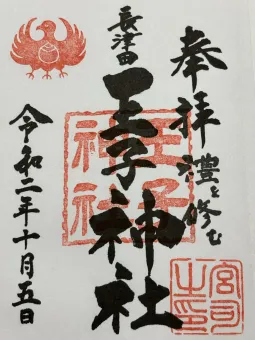 奉拝
禮を修む
長津田
王子神社
王子
神社
宮司
之印
令和二年十月五日